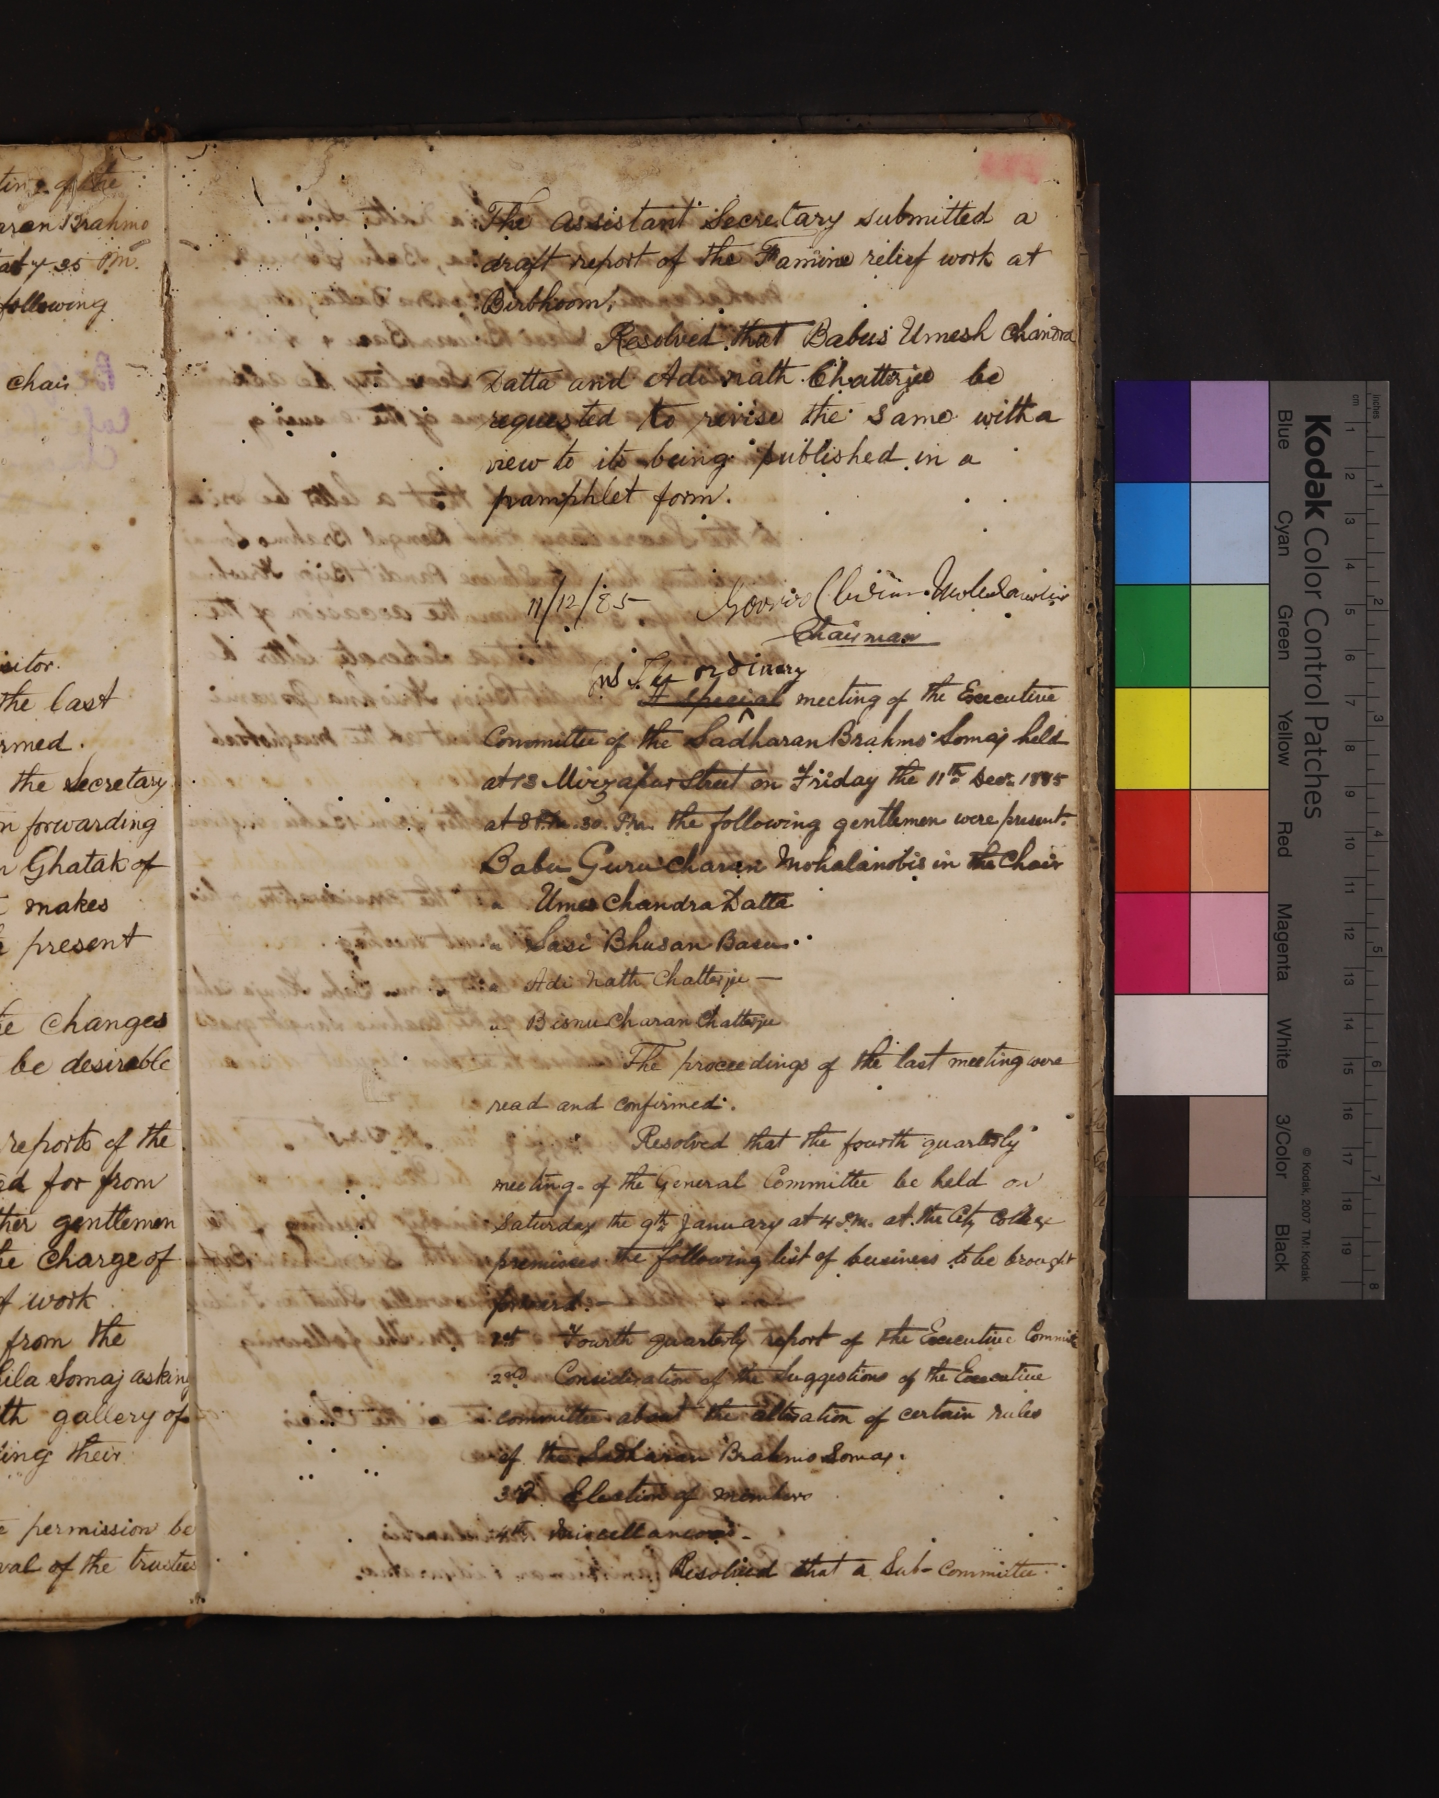 ting of the
aran Brahmo
at 7.35 P.M.
following
chair
isitor.
the last
rmed.
the Secretary
n forwarding
n Ghatak of
t makes
present
e changes
be desirable
reports of the
ad for from
ther gentlemen
he charge of
of work
from the
ila Somaj asking
th gallery of
ing their
e permission be
val of the trustees
The assistant Secretary submitted a
draft report of the Famine relief work at
Birbhoom.
Resolved that Babus Umesh Chandra
Datta and Adi nath Chatterjee be
requested to revise the same with a
view to its being published in a
pamphlet form.
11/12/85
Chairman
ordinary
A special meeting of the Executive
Committee of the Sadharan Brahmo Somaj held
at 13 Mirzapur Street on Friday the 11th Decr. 1885
at 8 P.M. 30. P.M. the following gentlemen were present.
Babu Guru Charan Mohalanobis in the Chair
" Umes Chandra Datta
" Sasi Bhusan Basu
" Adi Nath Chatterjee —
" Bisnu Charan Chatterjee
The proceedings of the last meeting were
read and confirmed.
Resolved that the fourth quarterly
meeting of the General Committee be held on
Saturday the 9th January at 4 P.M. at the City College
premises the following list of business to be brought
forward. —
1st Fourth quarterly report of the Executive Committee
2nd Consideration of the Suggestions of the Executive
committee about the alteration of certain rules
of the Sadharan Brahmo Somaj.
3rd Election of members
4th Miscellaneous. —
Resolved that a Sub-Committee
Kodak Color Control Patches
Blue Cyan Green Yellow Red Magenta White 3/Color Black
© Kodak, 2007 TM: Kodak
inches 1 2 3 4 5 6 7 8
cm 1 2 3 4 5 6 7 8 9 10 11 12 13 14 15 16 17 18 19